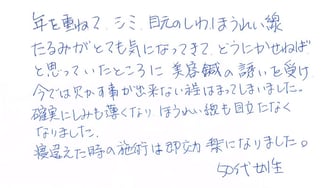 年を重ねて、シミ、目元のしわほうれい線
たるみがとても気になってきて、どうにかせねば
と思っていたところに美容鍼の誘いを受け
今では欠かす事が出来ない程はまってしまいました。
確実にしみも薄くなりほうれい線も目立たなく
なりました。
寝違えた時の施術は即効楽になりました。
50代女性